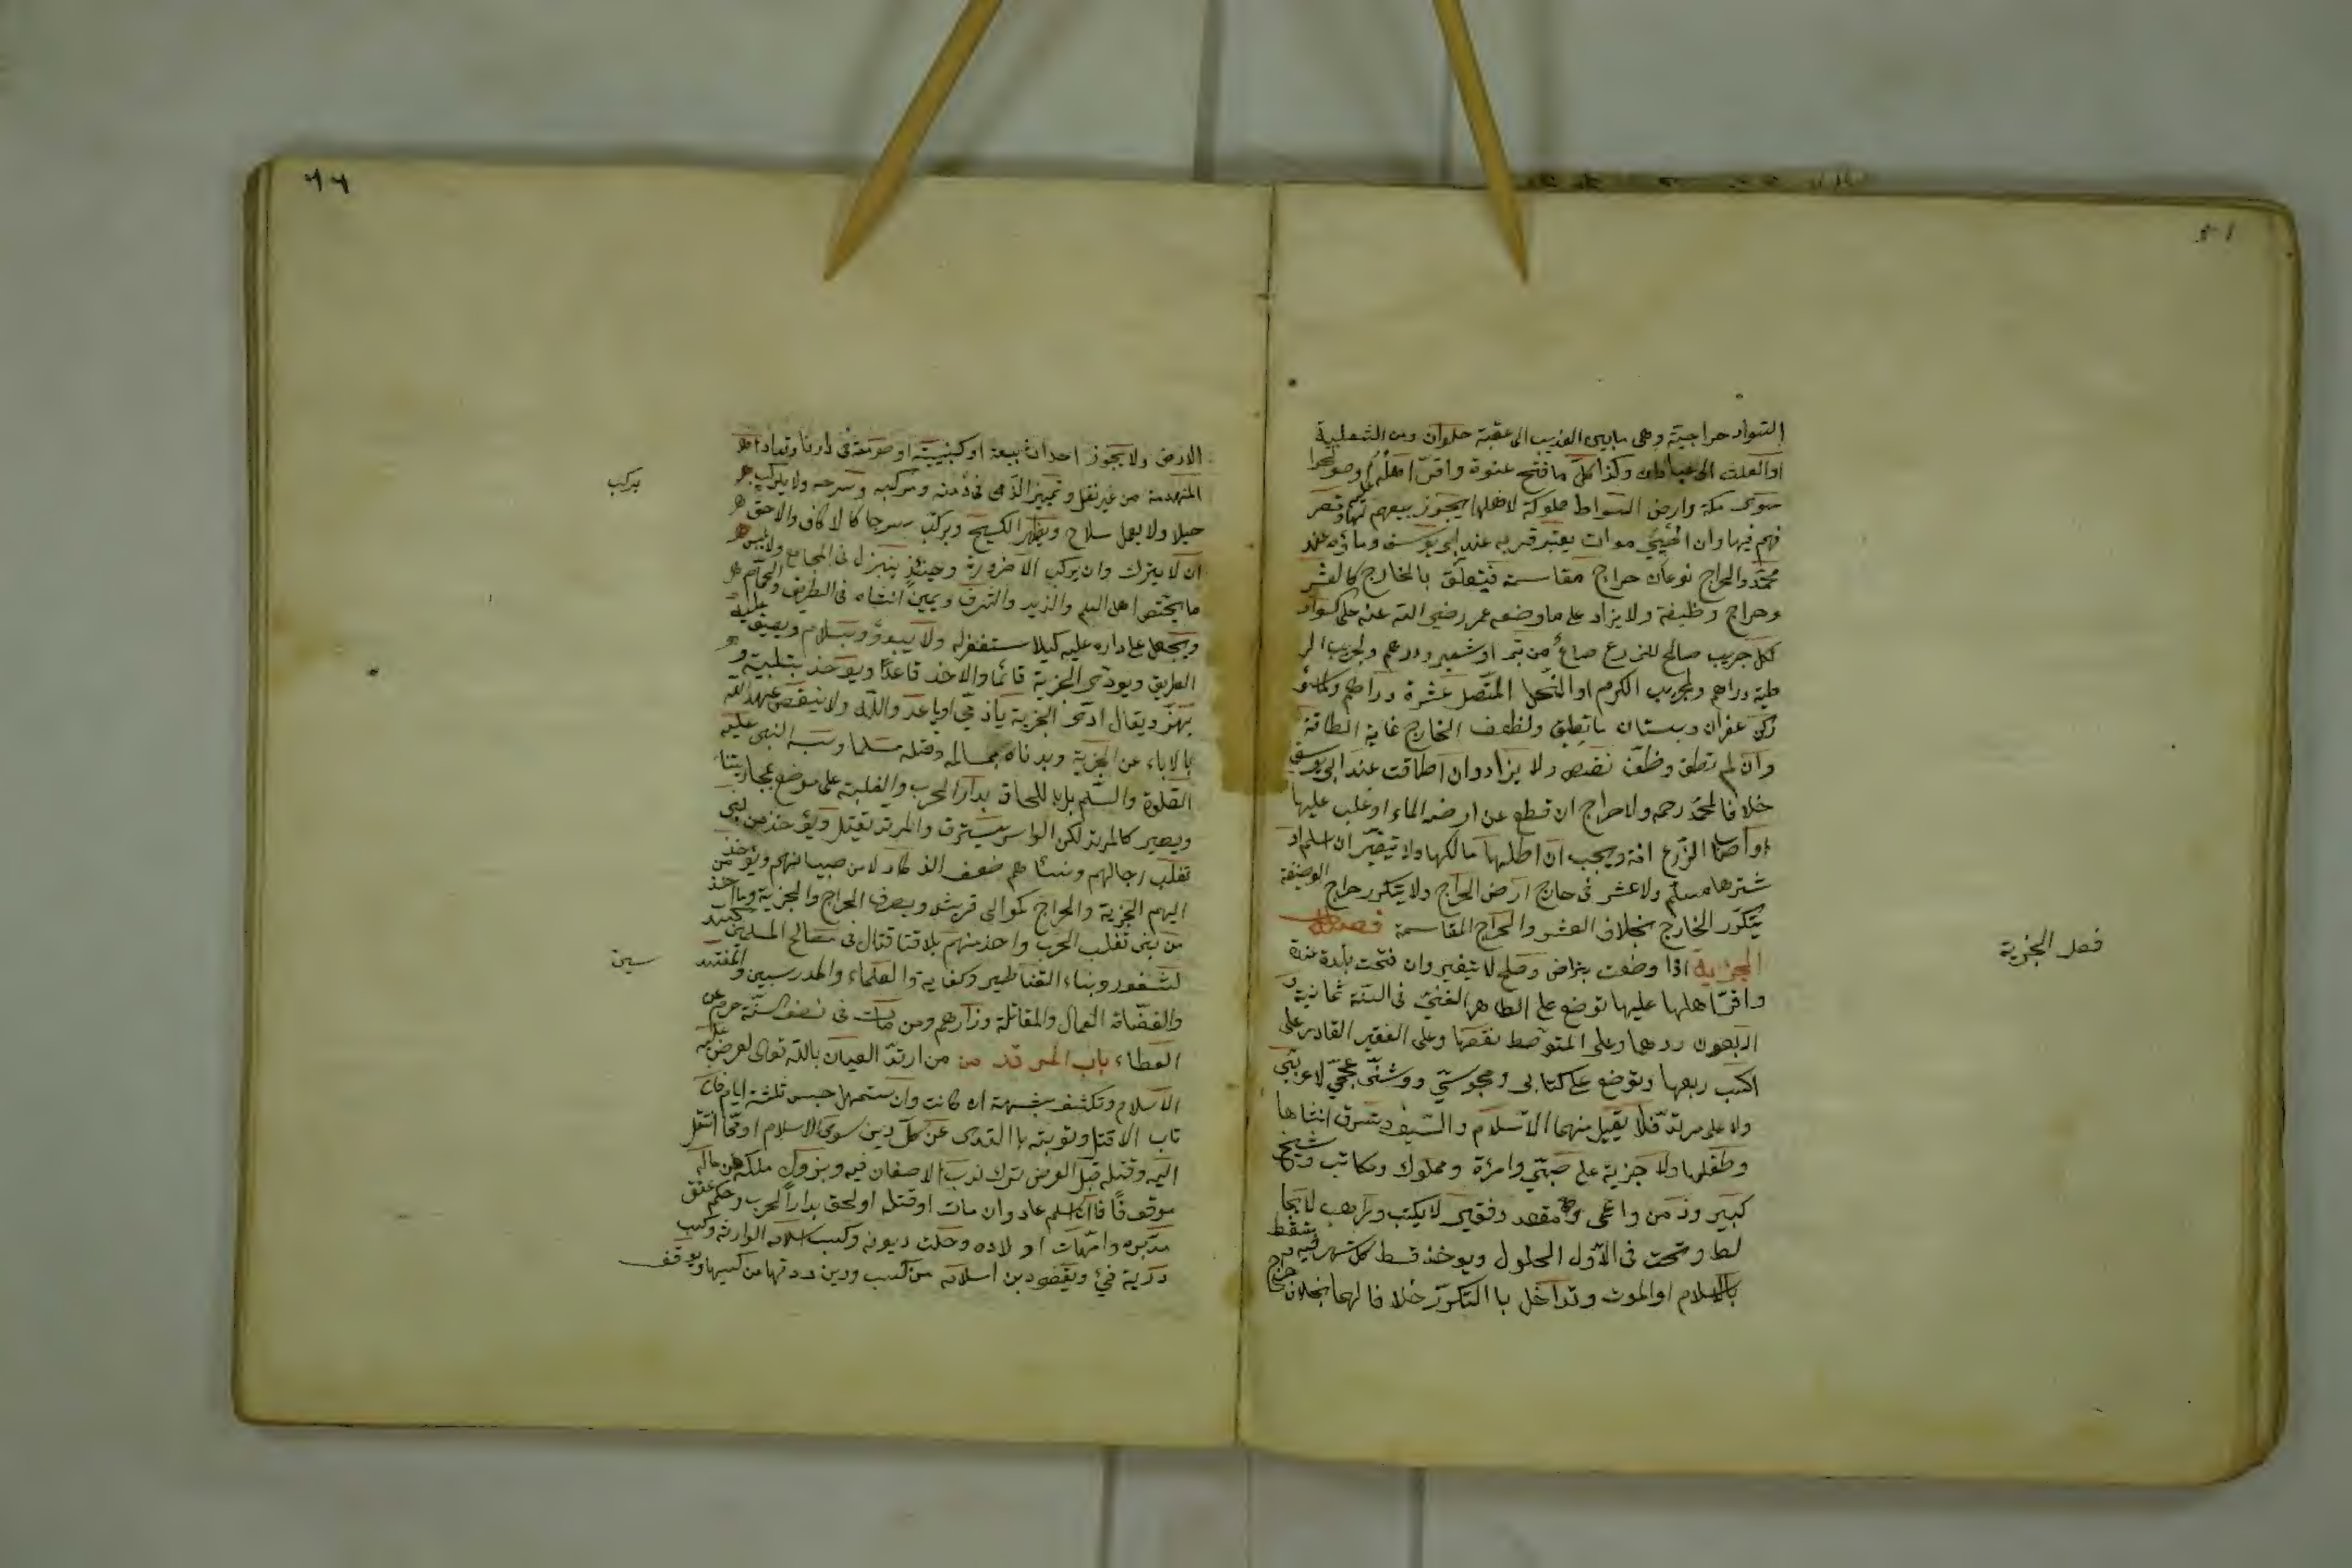 السواد خراجية وهى مابين العذيب الى عقبة حلوان ومن الثعلبية
اوالعلث الى عبادان وكذا كل ما فتح عنوة واقر اهله او صولحوا
سوى مكة وارض السواد مملوكة لاهلها يجوز بيعهم لها وتصر
فهم فيها وان احيى موات يعتبر قربه عند ابى يوسف وماؤه عند
محمد والخراج نوعان خراج مقاسمة فيتعلق بالخارج كالعشر
وخراج وظيفة ولا يزاد على ما وضعه عمر رضى الله عنه على السواد
لكل جريب صالح للزرع صاع من بر او شعير ودرهم ولجريب الر
طبة دراهم ولجريب الكرم اوالنخل المتصل عشرة دراهم ولما سواه
كزعفران وبستان ما تطيق ونصف الخارج غاية الطاقة
وان لم تطق وظف نقص ولا يزاد وان اطاقت عند ابى يوسف
خلافا لمحمد رحمه ولا خراج ان قطع عن ارضه الماء او غلب عليها
او اصاب الزرع افة ويجب ان عطلها مالكها ولا يتغير ان اسلم او
شترها مسلم ولا عشر فى خارج ارض الخراج ولا يتكرر خراج الوضيفة
بتكرر الخارج بخلاف العشر والخراج المقاسمة فصل
الجزية اذا وضعت بتراض وصلح لا يتغير وان فتحت بلدة عنوة
واقر اهلها عليها توضع على الظاهر الغنى فى السنة ثمانية و
اربعون درهما وعلى المتوسط نصفها وعلى الفقير القادر على
الكسب ربعها وتوضع على كتابى ومجوسى ووثنى عجمى لا عربى
ولا على مرتد فلا يقبل منهما الا الاسلام والسيف وتسترق انثاها
وطفلها ولا جزية على صبى وامرأة ومملوك ومكاتب وشيخ
كبير وزمن واعمى ومقعد وفقير لا يكتب وراهب لا يخا
لط وتجب فى الاول الحلول ويوخذ قسط كل شهر فيه وتسقط
بالاسلام اوالموت وتداخل با التكرر خلافا لهما بخلاف خراج
فصل الجزية
الارض ولا يجوز احداث بيعة او كنيسة او صومعة فى دارنا وتعاد
المنهدمة من غير نقل وتميز الذمى فى ومركبه وسرجه ولا يركب
خيلا ولا يعمل سلاح ويظهر الكستيج ويركب سرجا كا لاكاف والاحق
ان لا يترك وان يركب الا ضرورة وحينئذ ينزل فى المجامع ولا يلبس
ما يختص اهل العلم والزهد والشرف ويميز انثاه فى الطريق والحمام
ويجعل على داره عليه كيلا يستغفر له ولا يبدؤ بسلام ويضيق عليه
الطريق ويودى الجزية قائما والاخذ قاعدا ويوخذ بتلبيبه و
يهز ويقال اد الجزية ياذمى او ياعد والله ولا ينتقض عهده
بالاباء عن الجزية وبزناه بمسلمة وقتله مسلما وسب النبى عليه
الصلوة والسلم بل باللحاق بدار الحرب والغلبة على موضع لمحاربتنا
ويصير كالمرتد لكن لو اسر يسترق والمرتد يقتل ويؤخذ من بنى
تغلب رجالهم ونسائهم ضعف الزكاة لا من صبيانهم ويوخذ من
اليهم الجزية والخراج كموالى قريش ويصرف الخراج والجزية وما اخذ
من بنى تغلب الحرب واخذ منهم بلا قتال فى مصالح المسلمين كسد
لثغور وبناء القناطير وكفاية والعلماء والمدرسين والمفتين
والقضاة العمال والمقاتلة وذراريهم ومن مات فى نصف السنة حرم عن
العطاء باب المرتد من من ارتد العياذ بالله تعالى يعرض عليه
الاسلام وتكشف شبهته ان كانت وان استمهل حبس ثلثة ايام فان
تاب الا قتل وتوبته با التبرى عن كل دين سوى الاسلام او عما انتقل
اليه وقتله قبل العرض ترك ندب لا ضمان فيه ويزول ملكه عن ماله
موقوفا فان اسلم عاد وان مات او قتل او لحق بدار الحرب وحكم عتق
مدبروه وامهات اولاده وحلت ديونه وكسب اسلامه لوارثه وكسب
ردته فئ ويقضى دين اسلامه من كسبه ودين ردته من كسبها ويوقف
يركب
سين